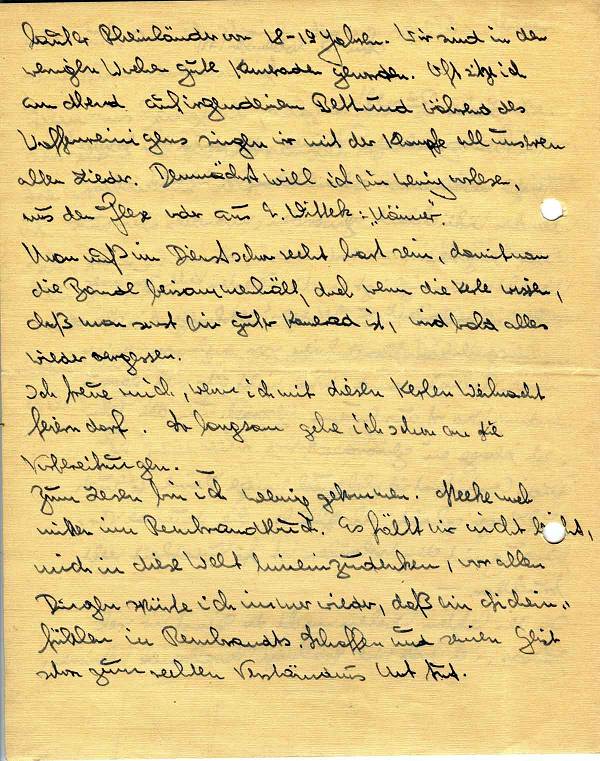 lauter Rheinländer von 18-19 Jahren. Wir sind in den
wenigen Wochen gute Kameraden geworden. Oft sitze ich
am Abend auf irgendeinem Bett und während des
Waffenreinigens singen wir mit der Klampfe all unsren
alten Lieder. Demnächst will ich ein wenig vorlesen,
aus den Flex oder aus E. Wittek: „Männer".
Man muß im Dienst schon recht hart sein, damit man
die Bande beisammenhält, doch wenn die Kerle wissen,
daß man sonst ein guter Kamerad ist, wird bald alles
wieder vergessen.
Ich freue mich, wenn ich mit diesen Kerlen Weihnacht
feiern darf. So langsam gehe ich schon an die
Vorbereitungen.
Zum Lesen bin ich wenig gekommen. Stecke
mitten im Rembrandtbuch. Es fällt mir nicht leicht,
mich in diese Welt hineinzudenken, vor allen
Dingen spüre ich immer wieder, daß ein Sichein-
fühlen in Rembrandts Schaffen und seinen Geist
schon zum rechten Verständnis Not tut.